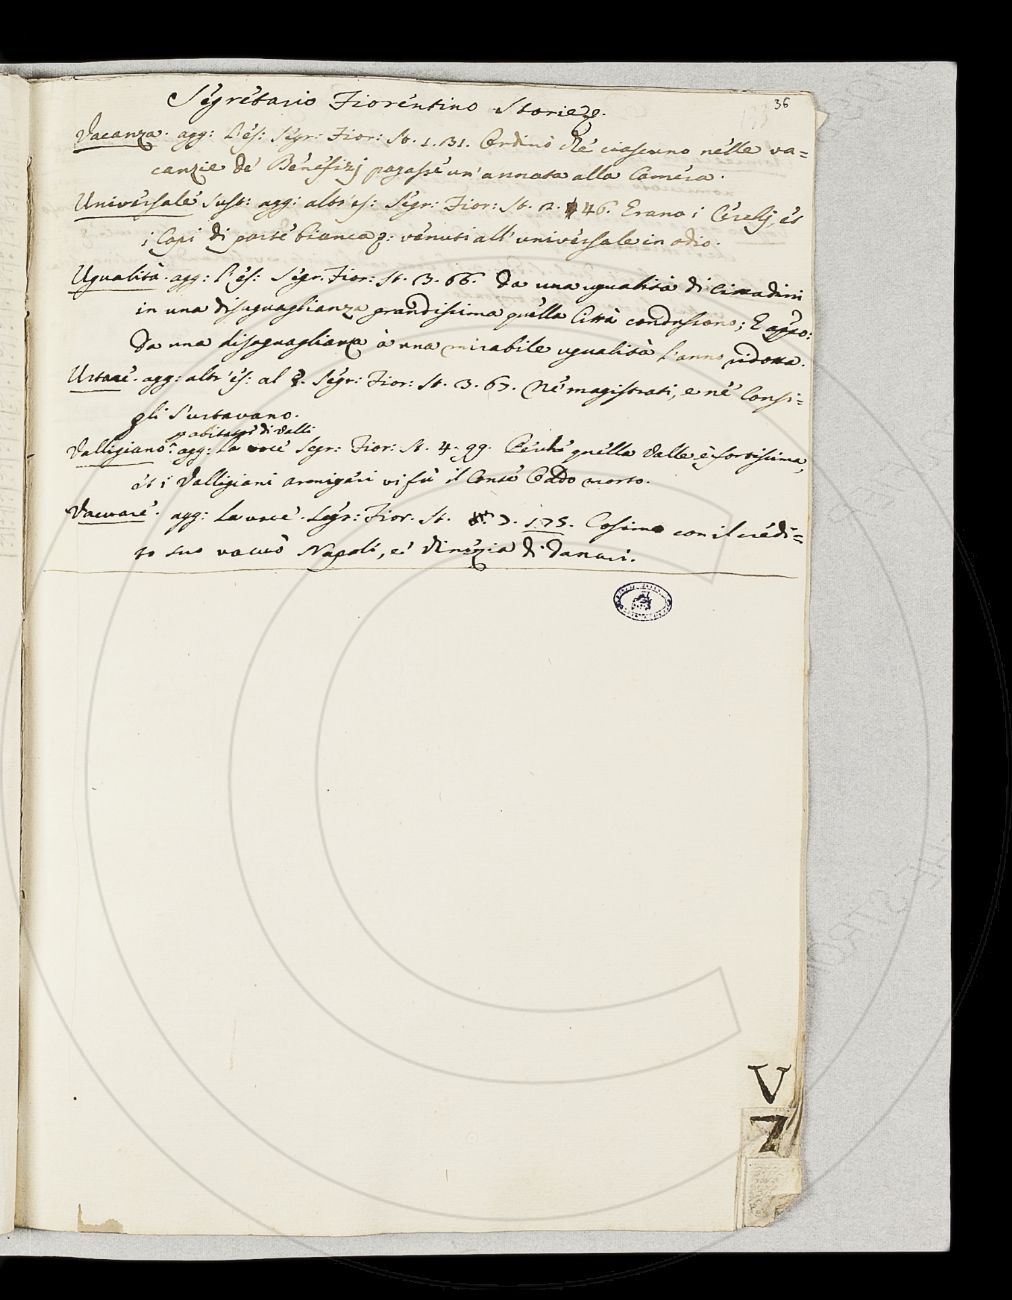 36
Segretario Fiorentino Storie
Vacanza. agg: l'es: Segr: Fior: St. 1. 131. Ordinò che ciascuno nelle va=
canzie de' Benefizj pagasse un'annata alla Camera.
Universale Sust: agg: altr'es: Segr: Fior: St. 2. 46. Erano i Cerchj, es
i Capi di parte bianca venuti all'universale in odio.
Ugualità. agg: l'es: Segr. Fior: St. 3. 66. Da una ugualità di Cittadini
in una disuguaglianza grandissima quella Città condussono; E appo:
Da una disaguaglianza à una mirabile ugualità l'anno ridotta.
Urtare. agg: altr'es: al §. Segr: Fior: St. 3. 67. Nè magistrati, e nè Consi=
gli s'urtavano.
habitator di valli
Valligiano. agg: la voce Segr: Fior: St. 4. 99. Perchè quella Valle è fortissima,
et i Valligiani armigeri vi fù il Conte Oddo morto.
Vacuare. agg: la voce. Segr: Fior. St. 7. 175. Cosimo con il crédi=
to suo vacuò Napoli, et Vinezia di danari.
V
Z